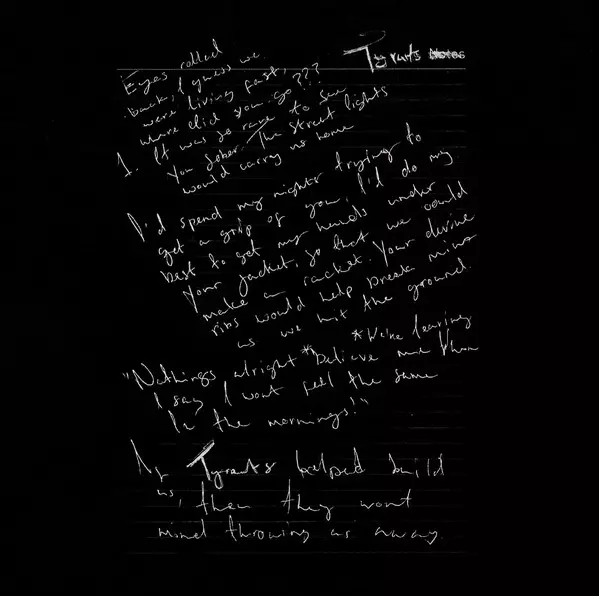 Tyrants Notes
Eyes rolled
back, I guess we
were living fast,
where did you go???
1. It was so rare to see
you sober. The street lights
would carry us home
I'd spend my nights trying to
get a grip of you, I'd do my
best to get my hands under
your jacket, so that we could
make a racket. Your devine
ribs would help break mine
as we hit the ground.
*We're leaving
"Nothings alright *believe me when
I say I wont feel the same
In the mornings!"
If Tyrants helped build
us, then they wont
mind throwing us away.